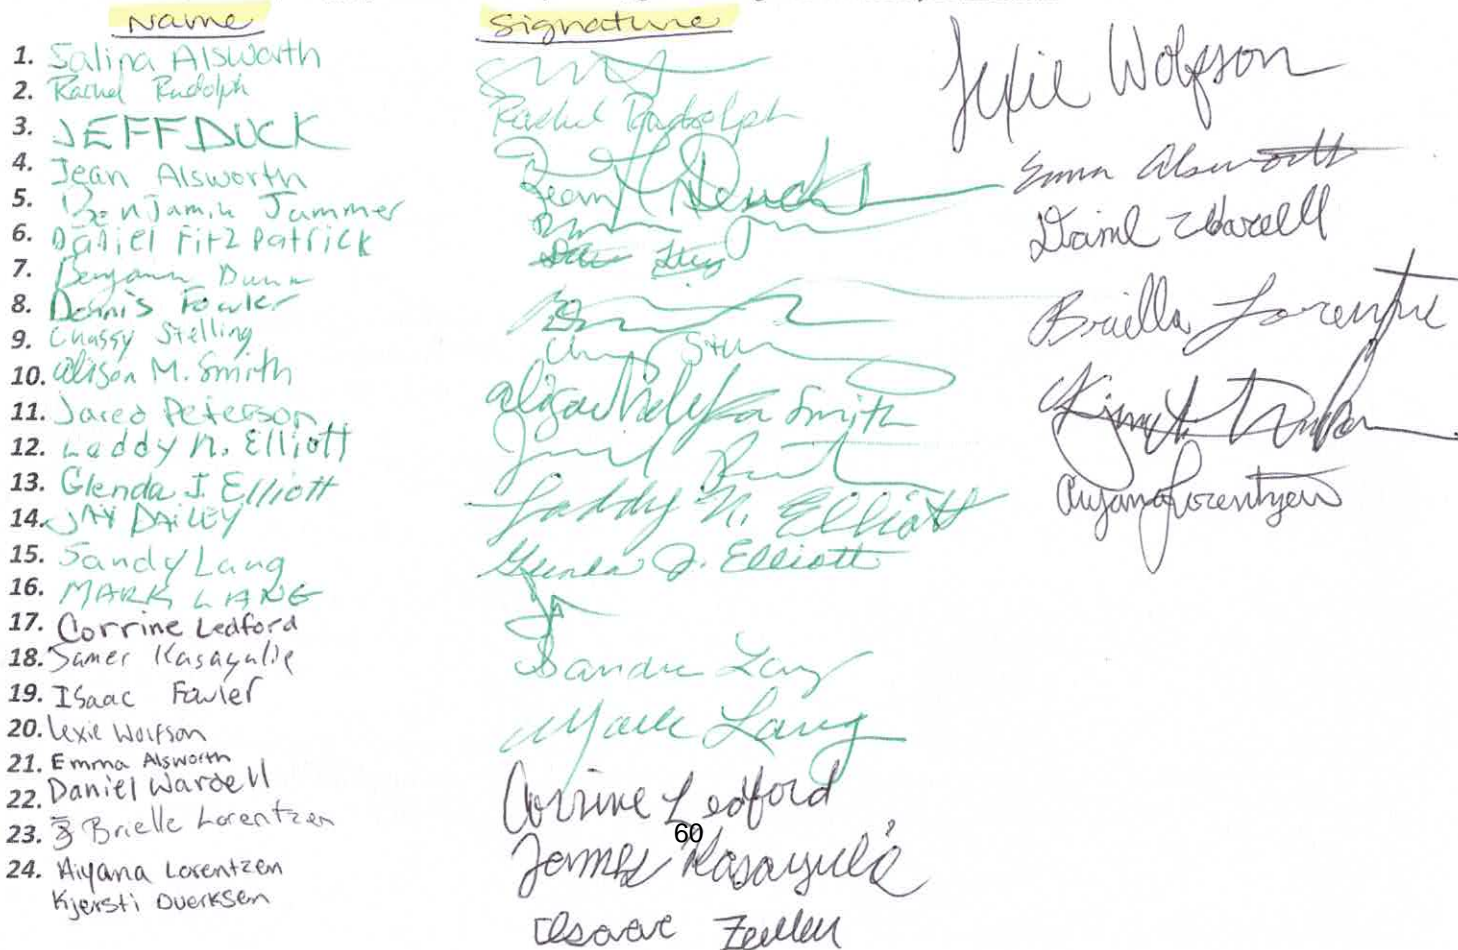 Name
1. Salina Alsworth
2. Rachel Rudolph
3. JEFF DUCK
4. Jean Alsworth
5. Benjamin Jammer
6. Daniel Fitzpatrick
7. Benjamin Dunn
8. Dennis Fowler
9. Chassy Stelling
10. Alison M. Smith
11. Jared Peterson
12. Laddy N. Elliott
13. Glenda J. Elliott
14. JAY DAILEY
15. Sandy Lang
16. MARK LANG
17. Corrine Ledford
18. James Kasayulie
19. Isaac Fowler
20. Lexie Wolfson
21. Emma Alsworth
22. Daniel Wardell
23. Brielle Lorentzen
24. Aiyana Lorentzen
Kjersti Duerksen
Signature
Rachel Rudolph
Smith
Laddy N. Elliott
Glenda J. Elliott
Sandra Lang
Mark Lang
Corrine Ledford
60
James Kasayulie
Isaac Fowler
Lexie Wolfson
Emma Alsworth
Daniel Wardell
Brielle Lorentzen
Aiyana Lorentzen